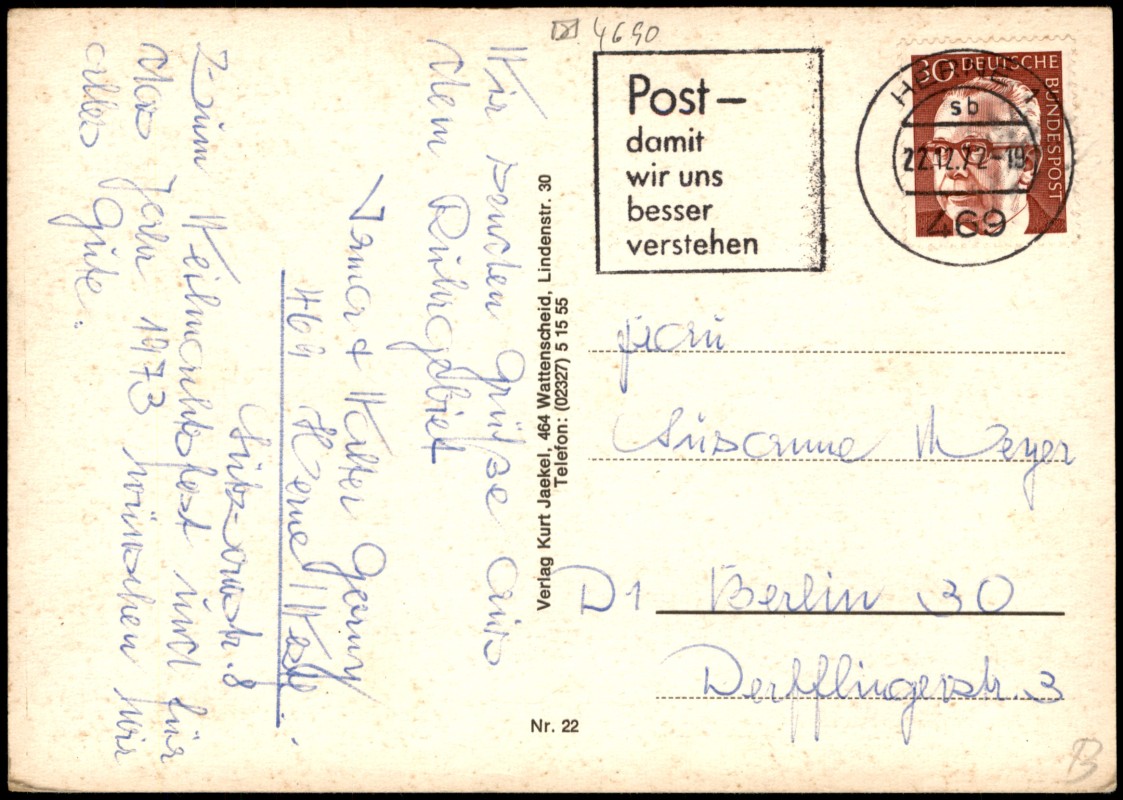 4690
Post –
damit
wir uns
besser
verstehen
30 DEUTSCHE BUNDESPOST
HERNE 1
sb
22.12.72-19
469
Wir senden Grüße aus
dem Ruhrgebiet
Irma + Walter Gorny
469 Herne/Westf.
Lützowstr. 8
Zum Weihnachtsfest und für
das Jahr 1973 wünschen wir
alles Gute.
Verlag Kurt Jaekel, 464 Wattenscheid, Lindenstr. 30
Telefon: (02327) 5 15 55
Nr. 22
Frau
Susanne Meyer
D1 Berlin 30
Derfflingerstr. 3
B